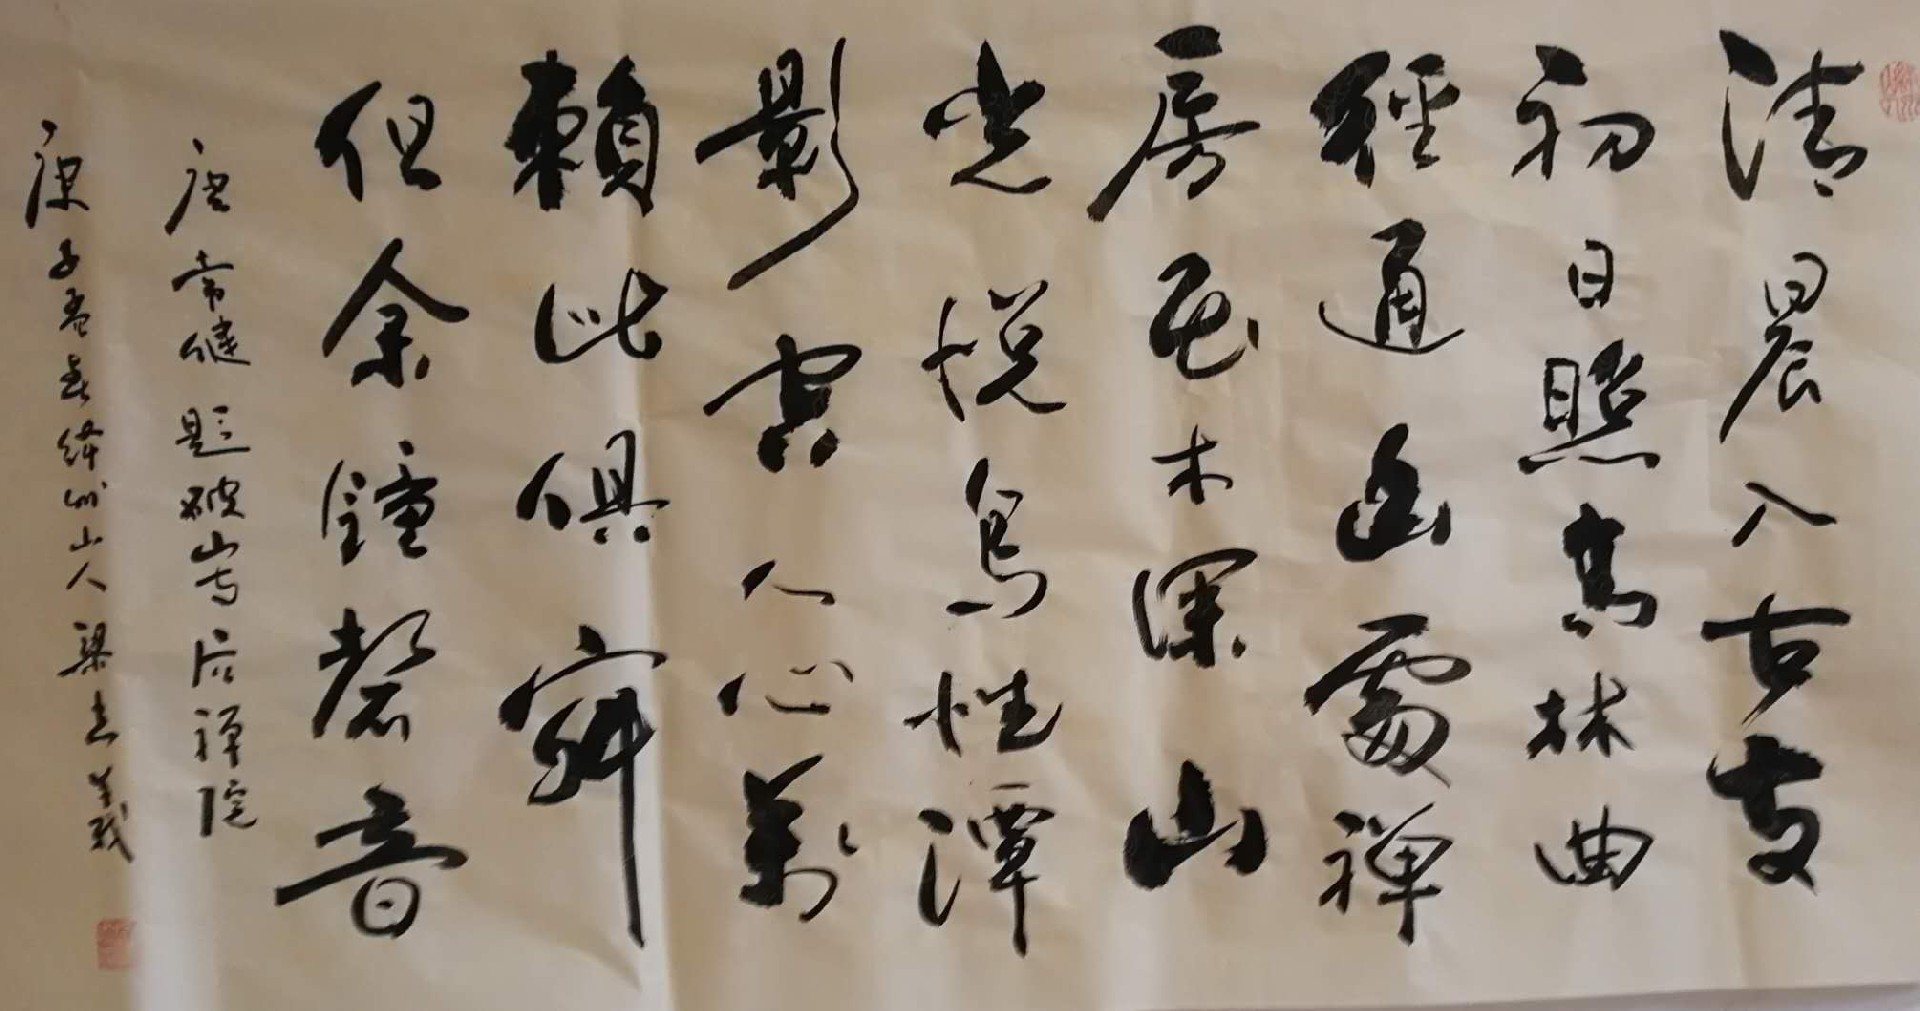 清晨入古寺
初日照高林曲
經通幽處禅
房花木深山
光悦鳥性潭
影空人心萬
賴此俱寂
但余鐘磬音
唐常健题破山寺后禅院
庚子孟春絳州山人梁